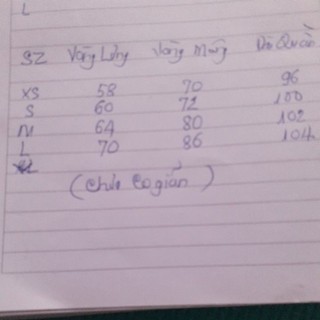 L
SZ Vòng Lưng Vòng Mông Dài Quần
XS 58 70 96
S 60 72 100
M 64 80 102
L 70 86 104
(chưa co giãn)